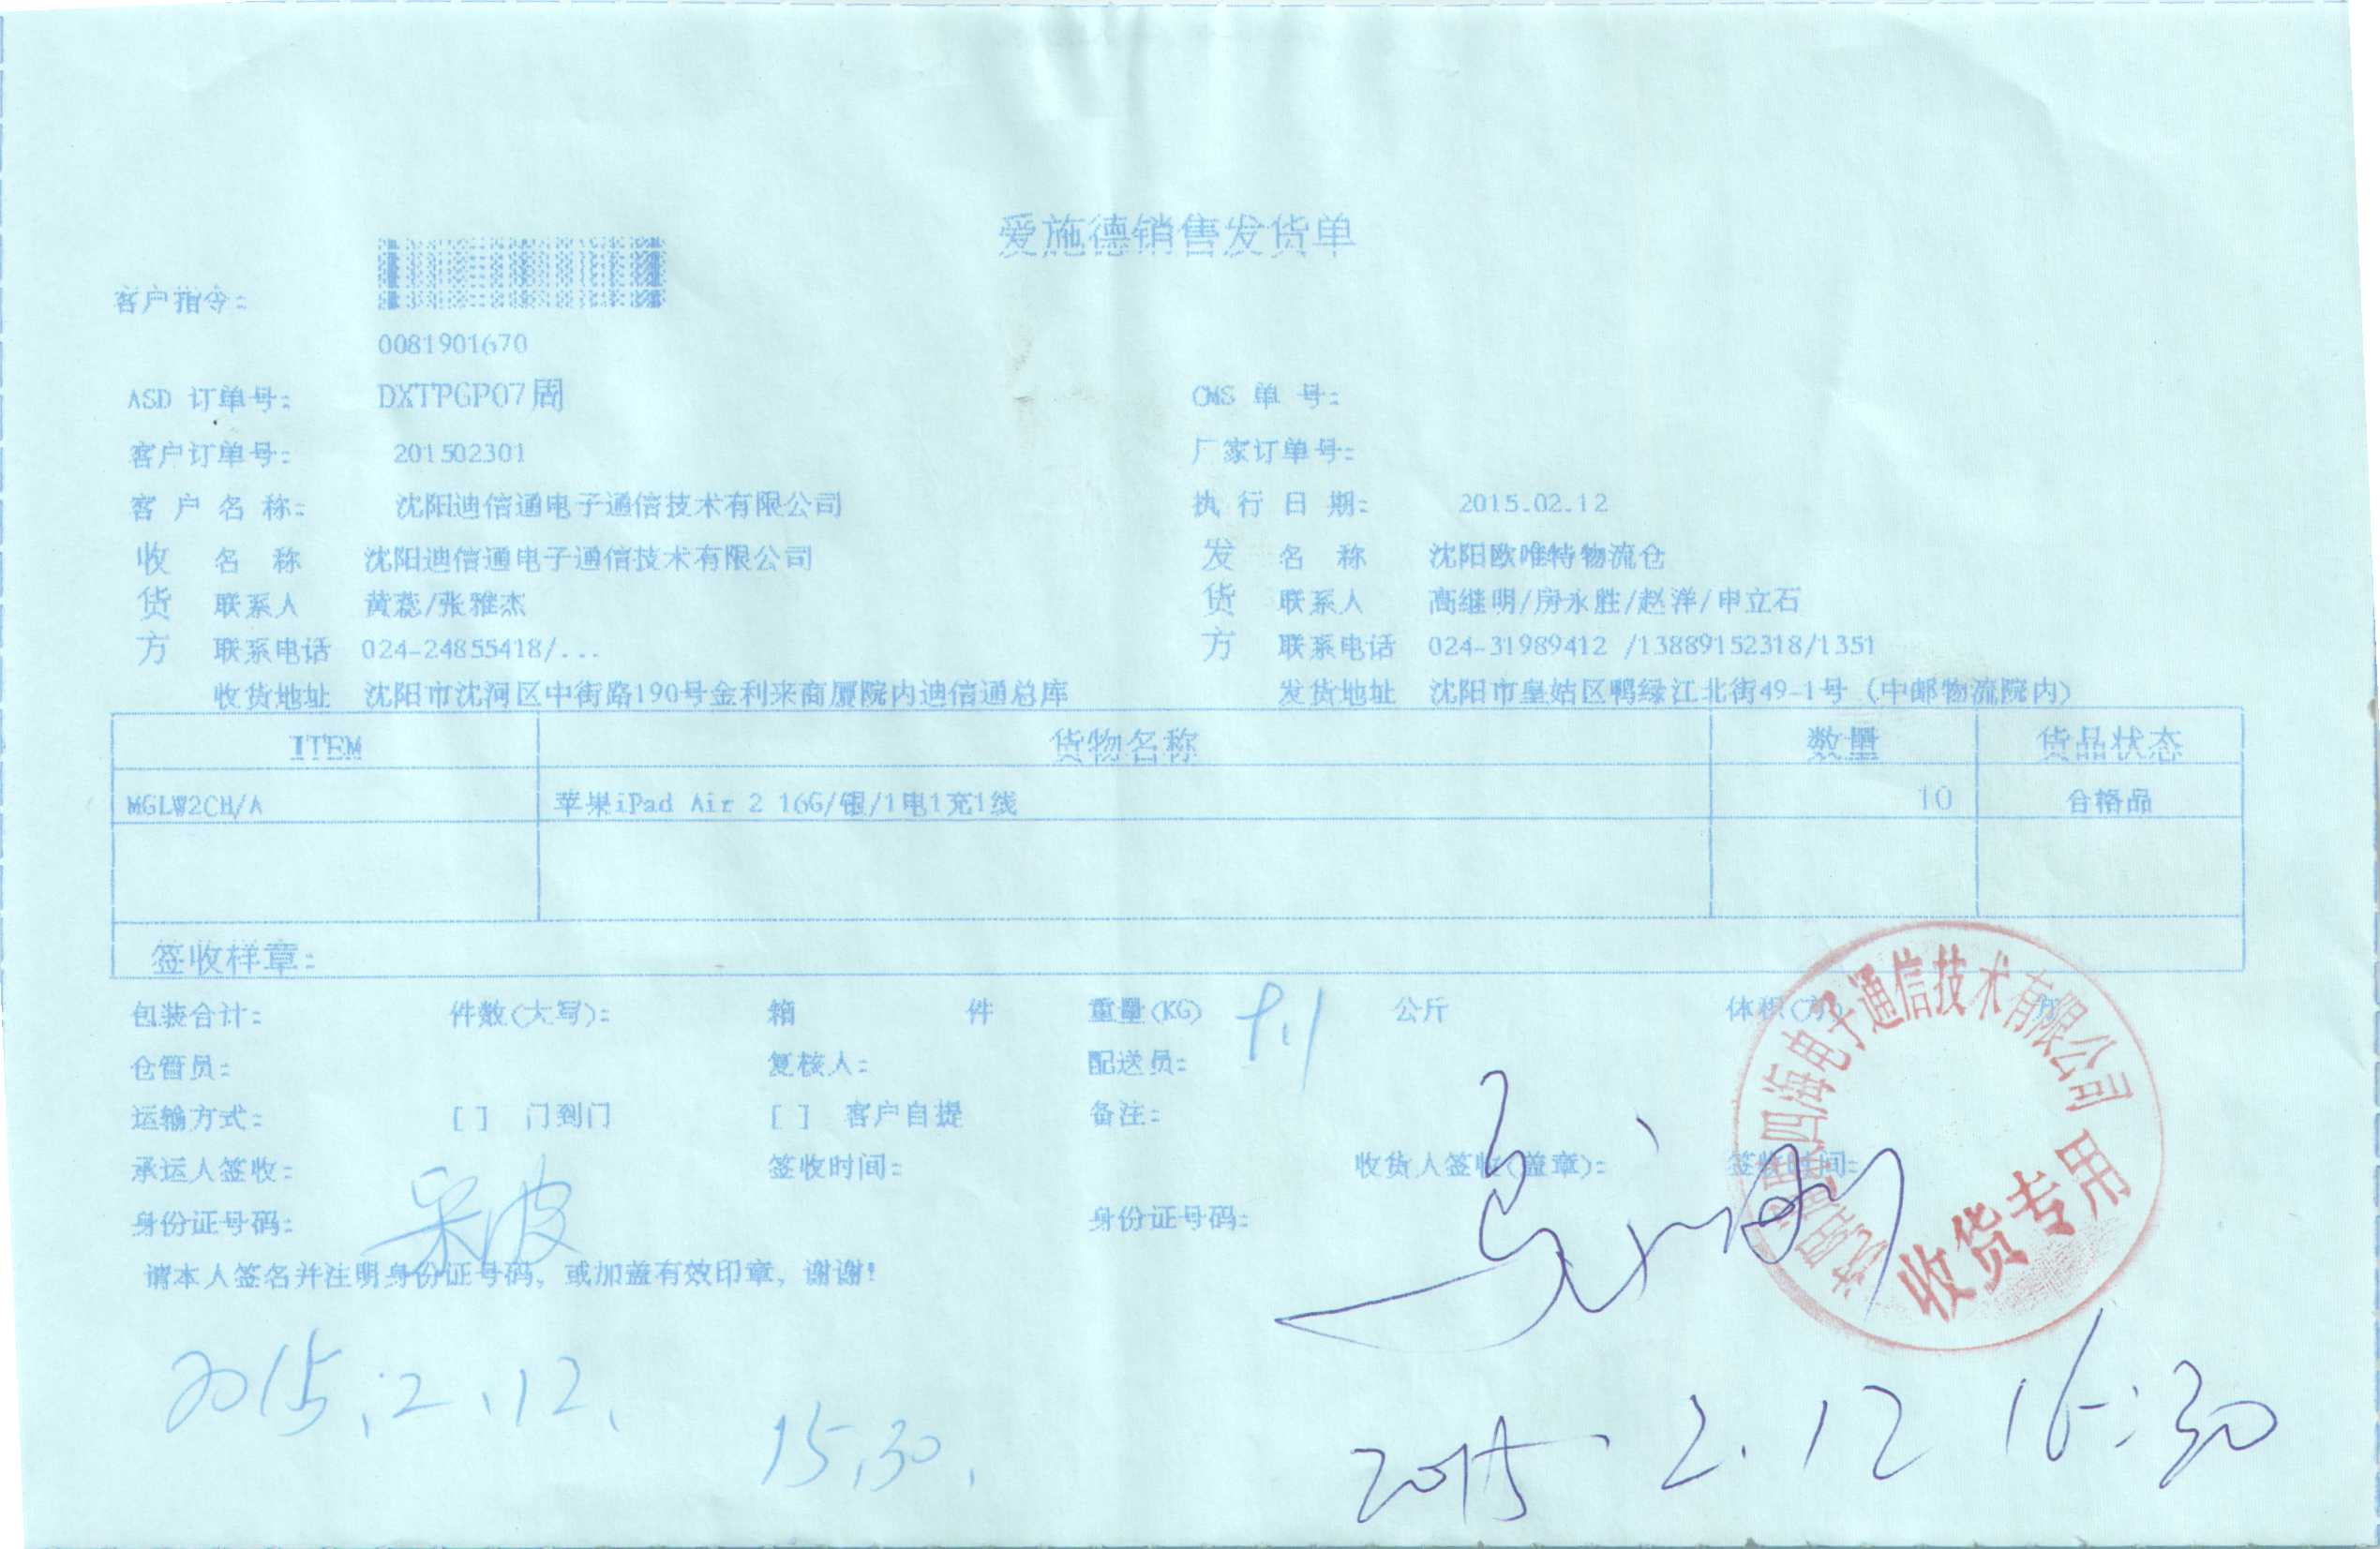 爱施德销售发货单
客户指令:
0081901670
ASD 订单号: DXTPGP07周 OMS 单 号:
客户订单号: 201502301 厂家订单号:
客 户 名 称: 沈阳迪信通电子通信技术有限公司 执 行 日 期: 2015.02.12
收 名 称 沈阳迪信通电子通信技术有限公司 发 名 称 沈阳欧唯特物流仓
货 联系人 黄蕊/张雅杰 货 联系人 高继明/房永胜/赵洋/申立石
方 联系电话 024-24855418/... 方 联系电话 024-31989412 /13889152318/1351
收货地址 沈阳市沈河区中街路190号金利来商厦院内迪信通总库 发货地址 沈阳市皇姑区鸭绿江北街49-1号 (中邮物流院内)
ITEM 货物名称 数量 货品状态
MGLW2CH/A 苹果iPad Air 2 16G/银/1电1充1线 10 合格品
签收样章:
包装合计: 件数(大写): 箱 件 重量(KG) 公斤 体积(方) 方
仓管员: 复核人: 配送员:
运输方式: [ ] 门到门 [ ] 客户自提 备注:
承运人签收: 签收时间: 收货人签收(盖章): 签收时间:
身份证号码: 身份证号码:
请本人签名并注明身份证号码, 或加盖有效印章, 谢谢!
电子通信技术有限公司
收货专用
2015.2.12. 15.30.
2015 2.12 16:30